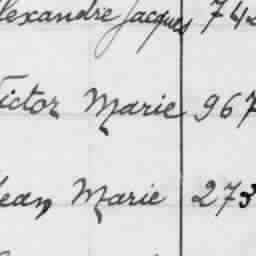 lexandre Jacques 742
ictor Marie 967
ean, Marie 273